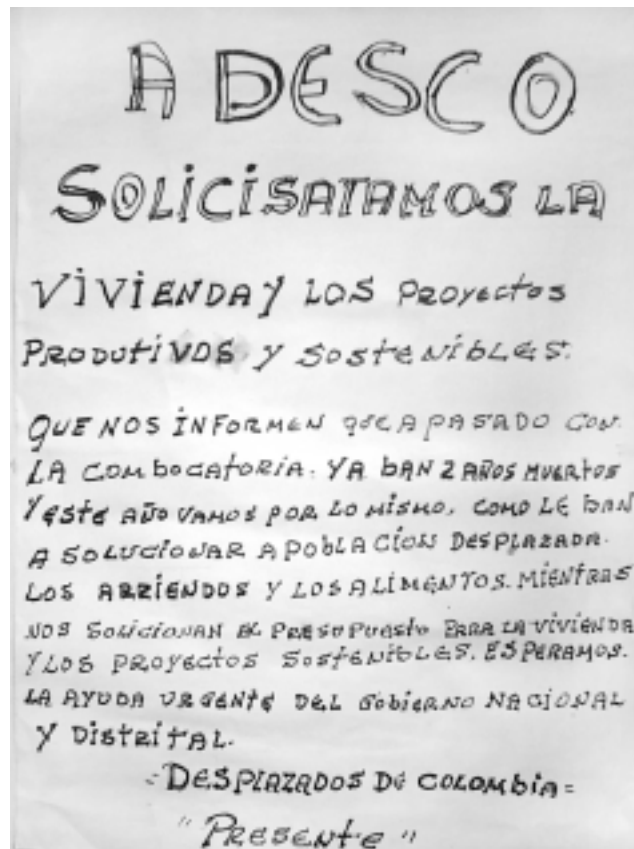 A DESCO
SOLICISATAMOS LA
VIVIENDA Y LOS PROYECTOS
PRODUTIVOS Y SOSTENIBLES.
QUE NOS INFORMEN QUE A PASADO CON
LA COMBOCATORIA. YA BAN 2 AÑOS MUERTOS
Y ESTE AÑO VAMOS POR LO MISMO, COMO LE BAN
A SOLUCIONAR A POBLACION DESPLAZADA.
LOS ARRIENDOS Y LOS ALIMENTOS. MIENTRAS
NOS SOLICIONAN EL PRESUPUESTO PARA LA VIVIENDA
Y LOS PROYECTOS SOSTENIBLES. ESPERAMOS.
LA AYUDA URGENTE DEL GOBIERNO NACIONAL
Y DISTRITAL.
= DESPLAZADOS DE COLOMBIA =
"PRESENTE"